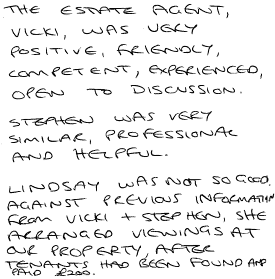 THE ESTATE AGENT,
VICKI, WAS VERY
POSITIVE, FRIENDLY,
COMPETENT, EXPERIENCED,
OPEN TO DISCUSSION.
STEPHEN WAS VERY
SIMILAR, PROFESSIONAL
AND HELPFUL.
LINDSAY WAS NOT SO GOOD.
AGAINST PREVIOUS INFORMATION
FROM VICKI + STEPHEN, SHE
ARRANGED VIEWINGS AT
OUR PROPERTY, AFTER
TENANTS HAD BEEN FOUND AND
PAID £200.